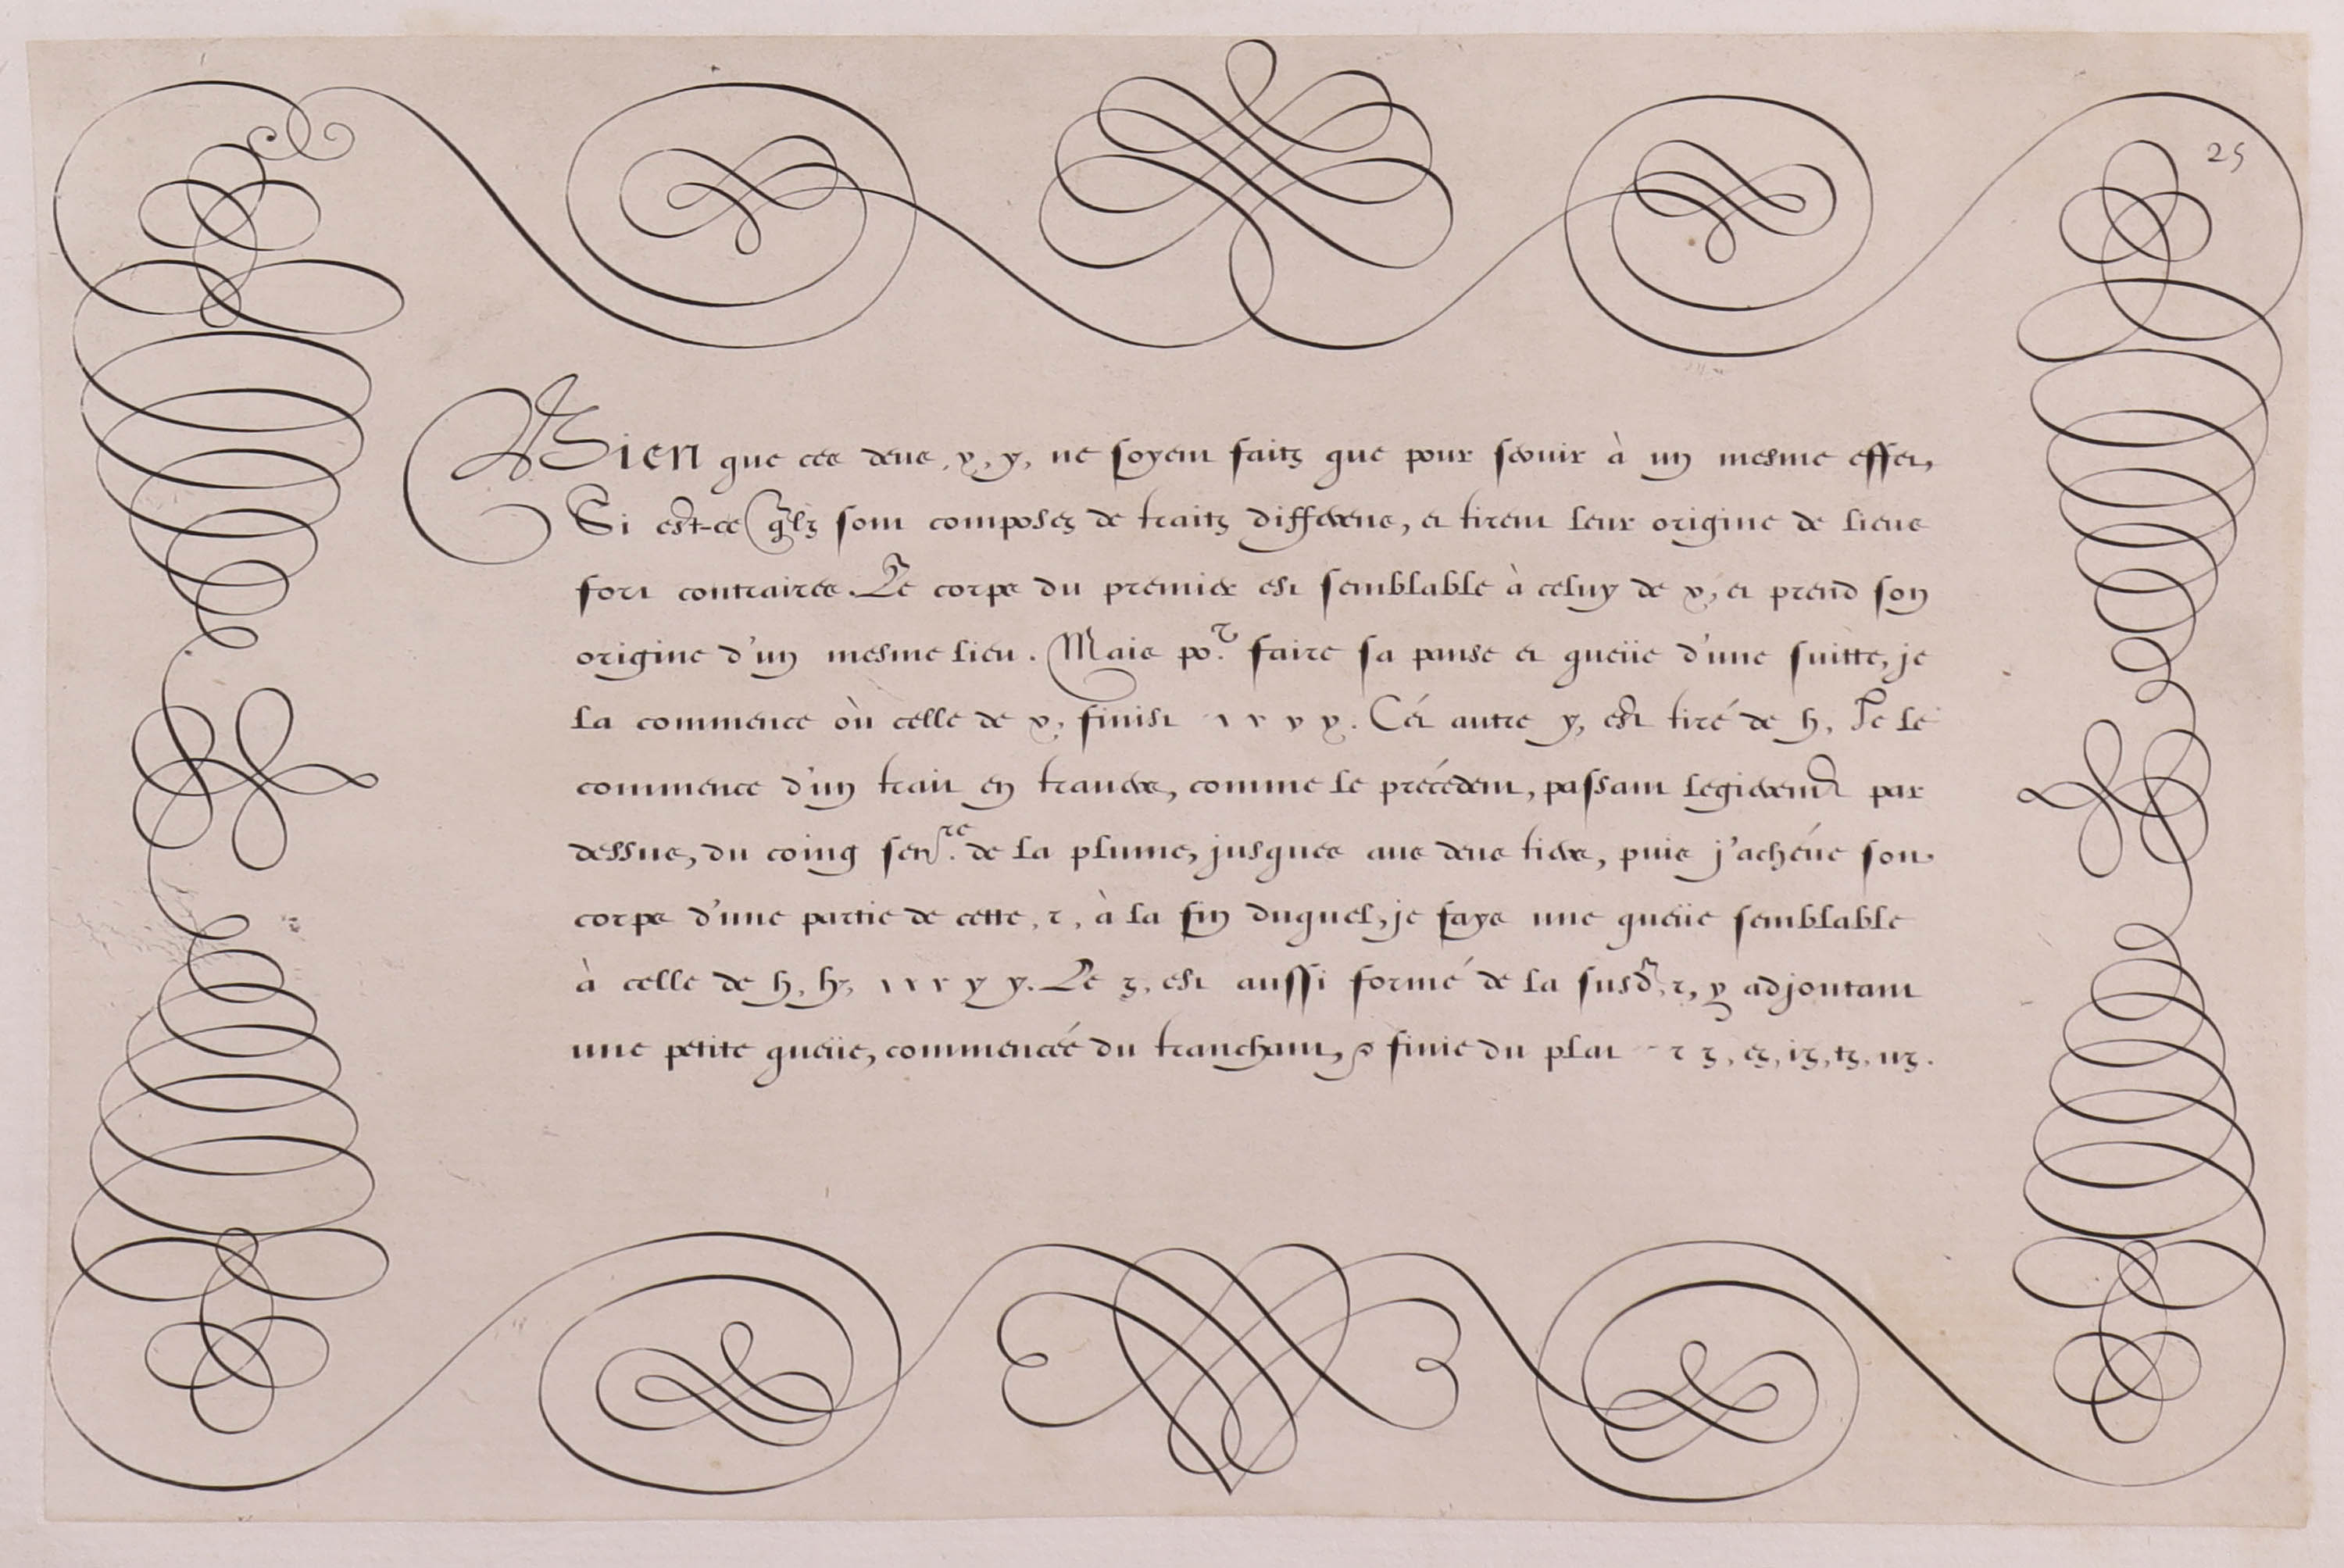 25
Bien que ces deux, y, y, ne soyent faitz que pour servir à un mesme effet,
Si est-ce qu'ilz sont composez de traitz differens, et tirent leur origine de lieux
fort contraires. Le corps du premier est semblable à celuy de v, et prend son
origine d'un mesme lieu. Mais po.r faire sa panse et queüe d'une suitte, je
la commence où celle de v, finist v y. Cét autre y, est tiré de h, Je le
commence d'un trait en travers, comme le précédent, passant legierem.t par
dessus, du coing sen.re de la plume, jusques aux deux tiers, puis j'achéve son
corps d'une partie de cette, r, à la fin duquel, je fays une queüe semblable
à celle de h, h, y y. Le z, est aussi formé de la susd. r, y adjoutant
une petite queüe, commencée du tranchant, & finie du plat r z, ez, iz, tz, uz.